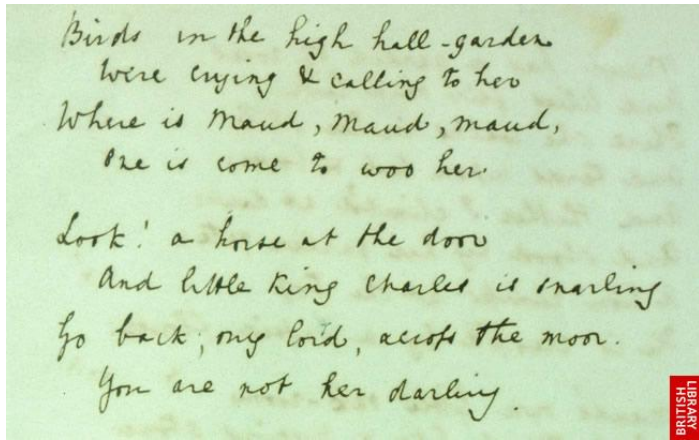 Birds in the high hall-garden
Were crying & calling to her
Where is Maud, Maud, Maud,
One is come to woo her.
Look! a horse at the door
And little King Charles is snarling
Go back, my lord, across the moor.
You are not her darling.
BRITISH
LIBRARY